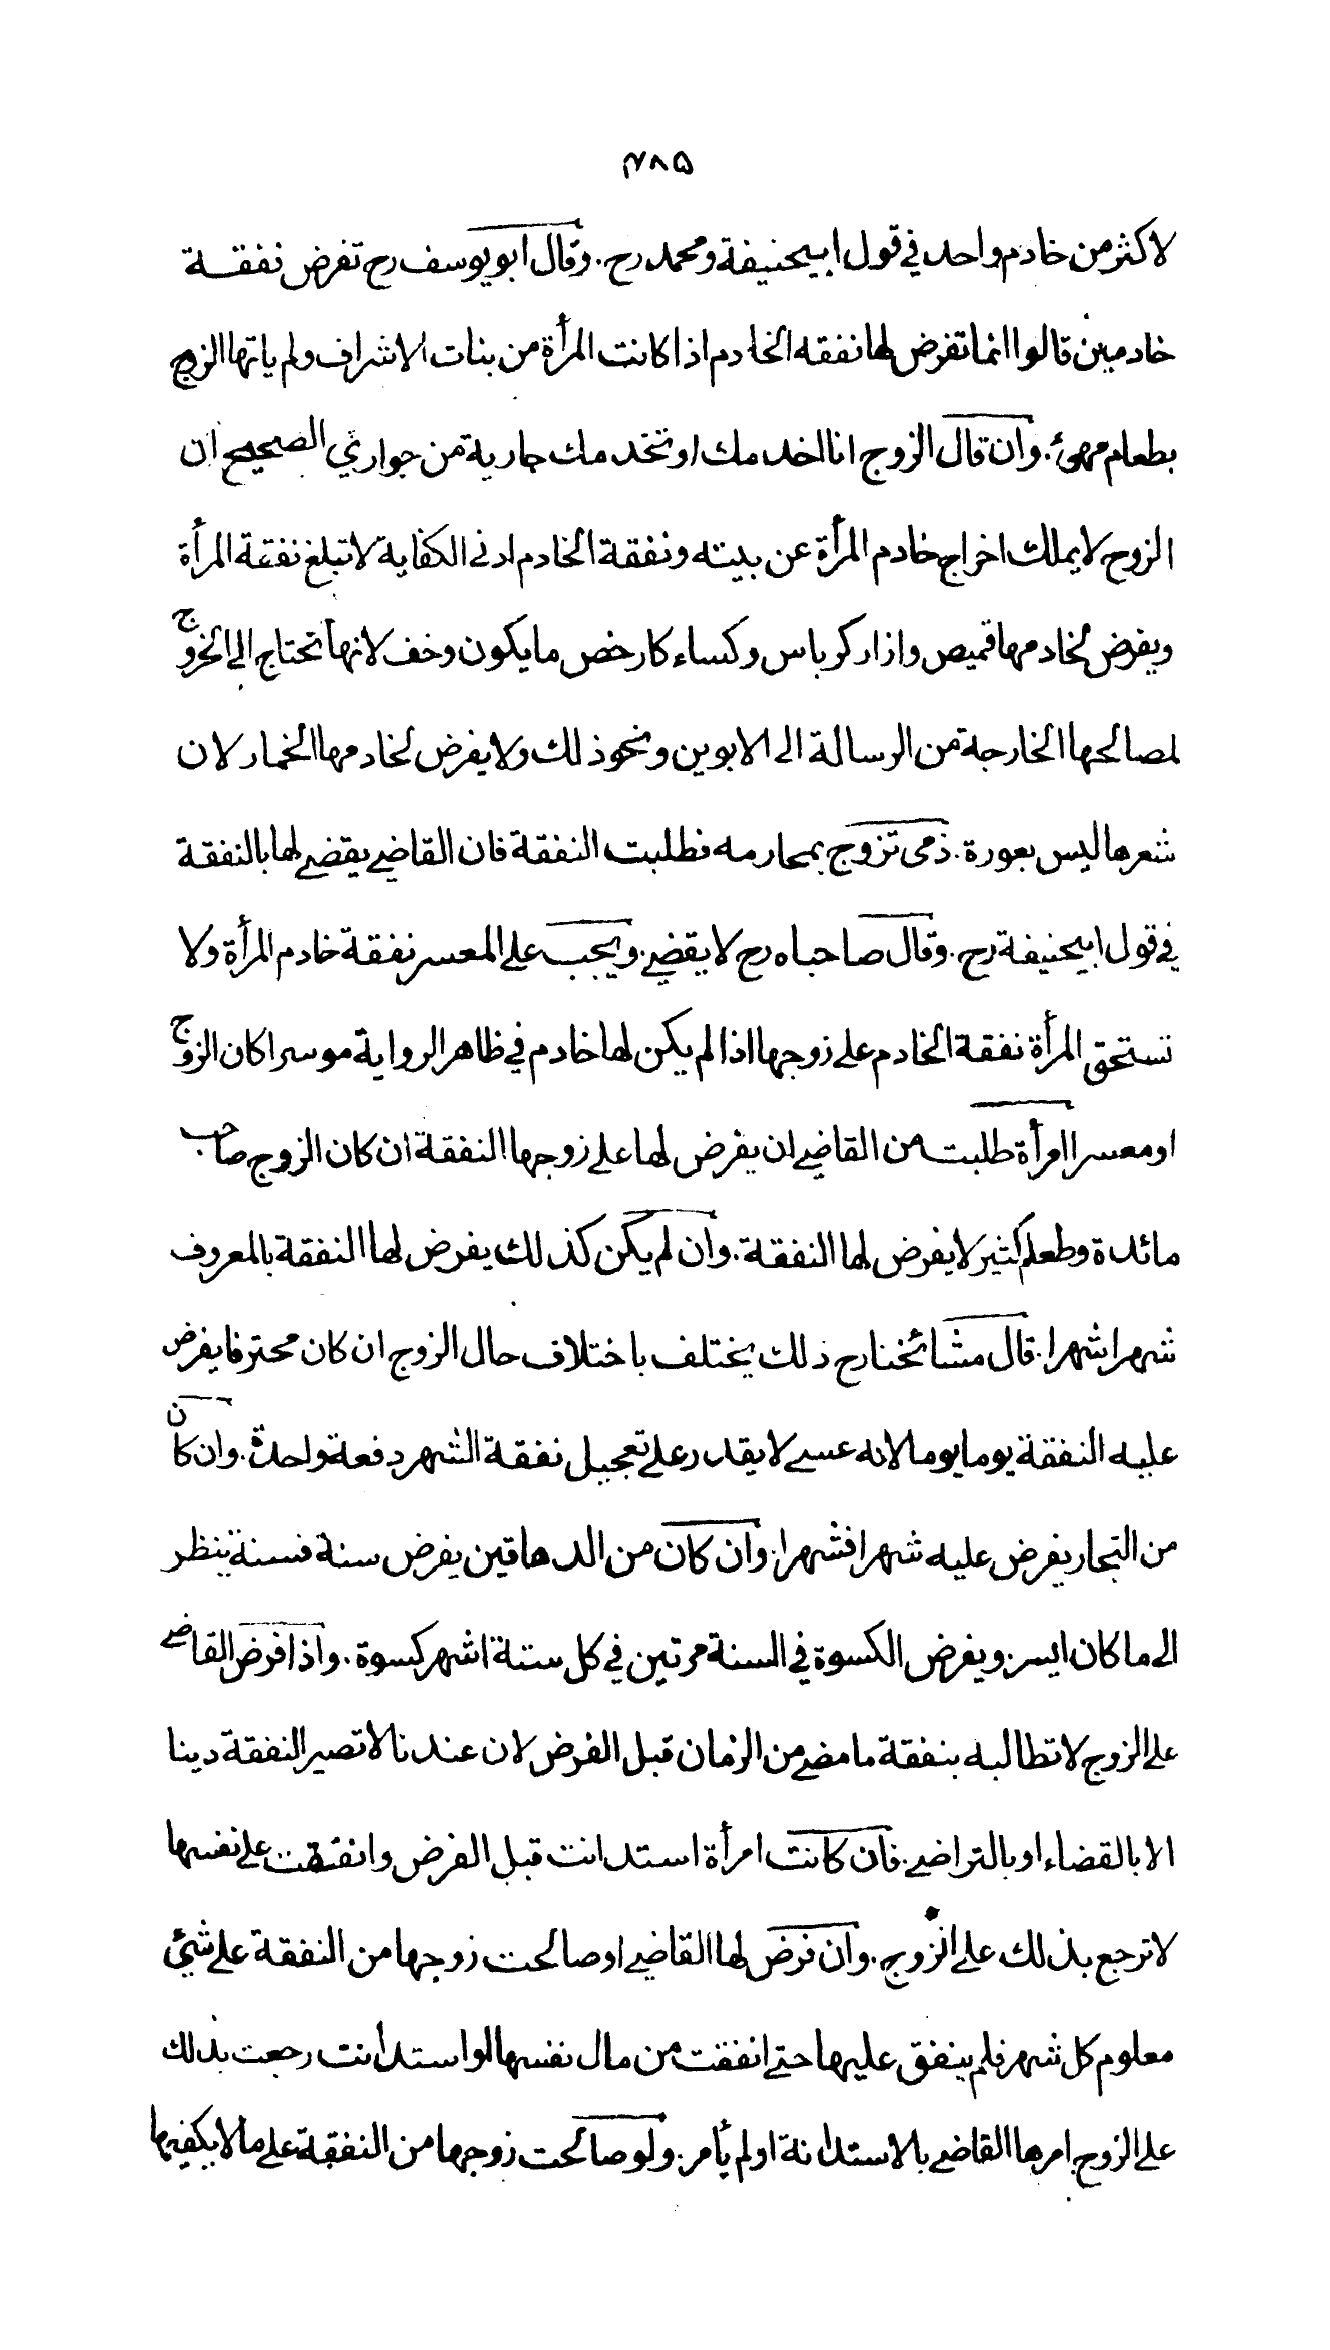 ۴۸۵
لاكثر من خادم واحد في قول ابيحنيفة ومحمد رح . وقال ابو يوسف رح تفرض نفقة
خادمين قالوا انما تفرض لها نفقة الخادم اذا كانت المرأة من بنات الاشراف ولم ياتها الزوج
بطعام مهيئ . وان قال الزوج انا اخدمك او تخدمك جارية من جواري الصحيح ان
الزوج لا يملك اخراج خادم المرأة عن بيته ونفقة الخادم ادنى الكفاية لا تبلغ نفقة المرأة
ويفرض لخادمها قميص وازار كرباس وكساء كارخص ما يكون وخف لانها تحتاج الى الخروج
لمصالحها الخارجة من الرسالة الى الابوين ونحو ذلك ولا يفرض لخادمها الخمار لان
شعرها ليس بعورة . ذمى تزوج بمحارمه فطلبت النفقة فان القاضي يقضي لها بالنفقة
في قول ابيحنيفة رح . وقال صاحباه رح لا يقضي . ويجب على المعسر نفقة خادم المرأة ولا
تستحق المرأة نفقة الخادم على زوجها اذا لم يكن لها خادم في ظاهر الرواية موسرا كان الزوج
او معسرا امرأة طلبت من القاضي ان يفرض لها على زوجها النفقة ان كان الزوج صاحب
مائدة وطعام كثير لا يفرض لها النفقة . وان لم يكن كذلك يفرض لها النفقة بالمعروف
شهرا شهرا . قال مشائخنا رح ذلك يختلف باختلاف حال الزوج ان كان محترفا يفرض
عليه النفقة يوما يوما لانه عسى لا يقدر على تعجيل نفقة الشهر دفعة واحدة . وان كان
من التجار يفرض عليه شهرا فشهرا . وان كان من الدهاقين يفرض سنة فسنة ينظر
الى ما كان ايسر . ويفرض الكسوة في السنة مرتين في كل ستة اشهر كسوة . واذا فرض القاضي
على الزوج لا تطالبه بنفقة ما مضى من الزمان قبل الفرض لان عندنا لا تصير النفقة دينا
الا بالقضاء او بالتراضي . فان كانت امرأة استدانت قبل الفرض وانفقت على نفسها
لا ترجع بذلك على الزوج . وان فرض لها القاضي او صالحت زوجها من النفقة على شيئ
معلوم كل شهر فلم ينفق عليها حتى انفقت من مال نفسها او استدانت رجعت بذلك
على الزوج امرها القاضي بالاستدانة او لم يأمر . ولو صالحت زوجها من النفقة على ما لا يكفيها